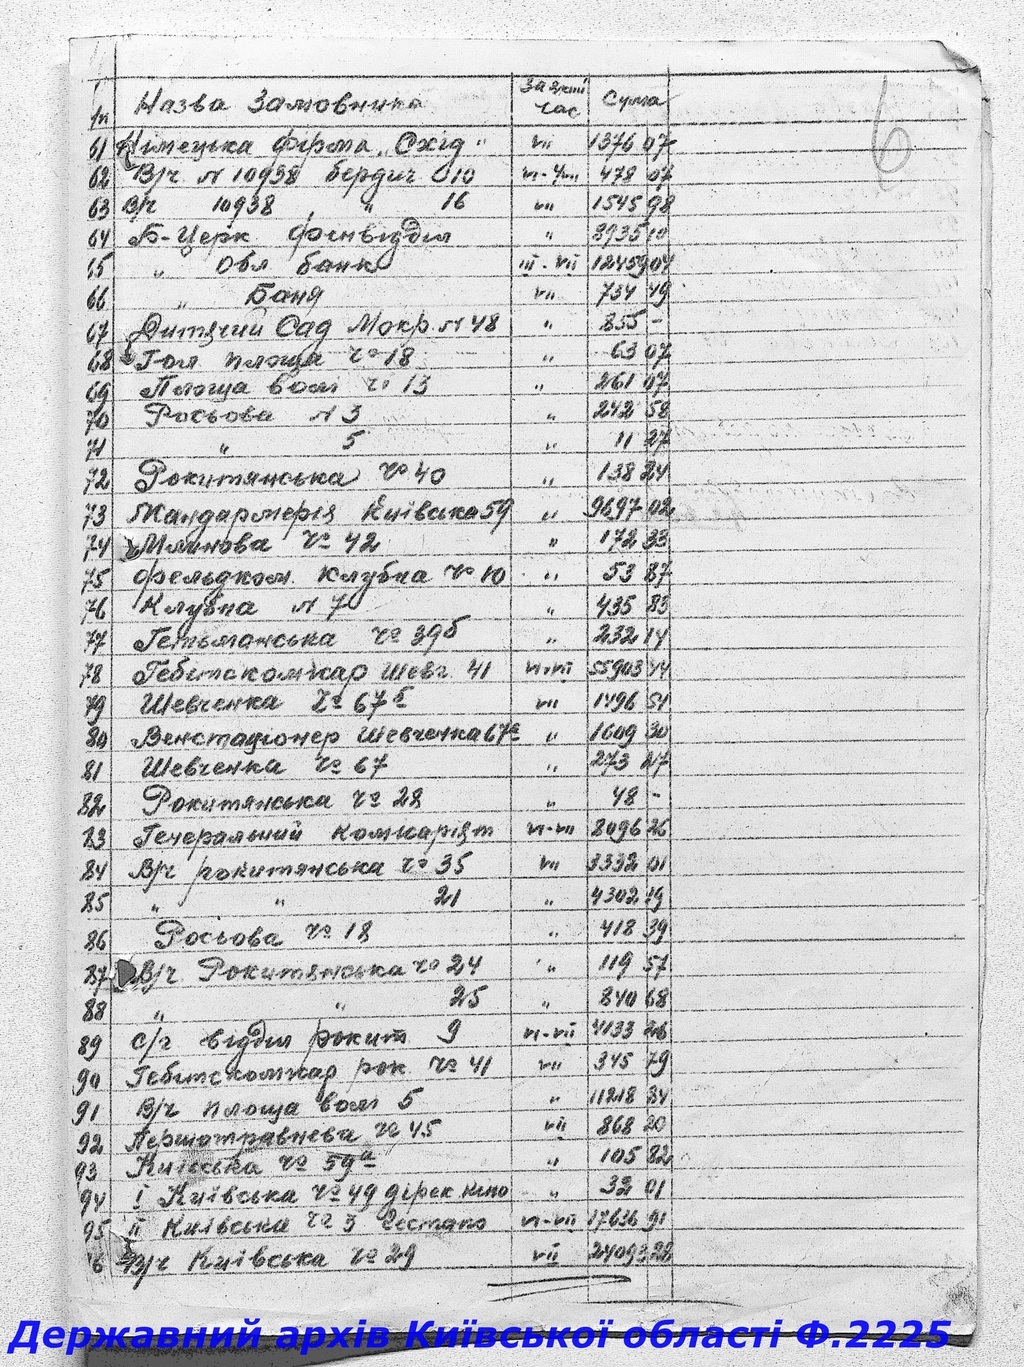 6
№ Назва Замовника За який час Сума
61 Німецька фірма „Схід" VII 1376 07
62 В/ч № 10938 Бердич 010 VI-VII 478 07
63 В/ч 10938 „ 16 VII 1545 98
64 Б-Церк фінвідділ „ 8935 10
65 „ Обл банк III-VII 12459 04
66 „ Баня VII 734 49
67 Дитячий Сад Мокр. № 48 „ 855 -
68 Гол площа № 18 „ 63 07
69 Площа волі № 13 „ 261 07
70 Росьова № 3 „ 242 58
71 „ 5 „ 11 27
72 Рокитянська № 40 „ 138 24
73 Жандармерія Київська 59 „ 9697 02
74 Млинова № 42 „ 172 33
75 фельдком. Клубна № 10 „ 53 87
76 Клубна № 7 „ 435 83
77 Гетьманська № 39б „ 232 14
78 Гебітскомісар Шевч. 41 VI-VII 55903 44
79 Шевченка № 67б VII 1496 51
80 Венстаціонер Шевченка 67а „ 1609 30
81 Шевченка № 67 „ 273 47
82 Рокитянська № 28 „ 48 -
83 Генеральний комісаріят VI-VII 8096 26
84 В/ч рокитянська № 35 VII 3332 01
85 „ „ 21 „ 4302 19
86 Росьова № 18 „ 418 39
87 В/ч Рокитянська № 24 „ 119 57
88 „ „ 25 „ 840 68
89 С/г відділ рокит 9 VI-VII 4133 26
90 Гебітскомісар рок. № 41 VII 345 79
91 В/ч площа волі 5 „ 11218 84
92 Першотравнева № 45 VII 868 20
93 Київська № 59а „ 105 82
94 I Київська № 49 дірек. кіно „ 32 01
95 II Київська № 3 Гестапо VI-VII 17636 91
6 В/ч Київська № 29 VII 24093 28
Державний архів Київської області Ф.2225